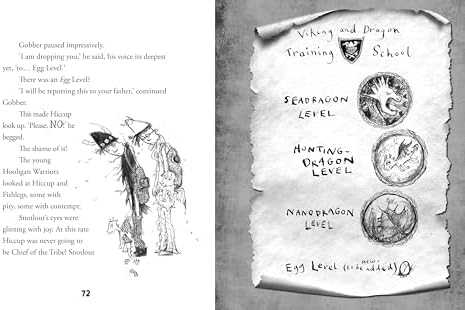 Gobber paused impressively.
'I am dropping you,' he said, his voice its deepest
yet, 'to… Egg Level.'
There was an Egg Level!
'I will be reporting this to your father,' continued
Gobber.
This made Hiccup
look up. 'Please, NO!' he
begged.
The shame of it!
The young
Hooligan Warriors
looked at Hiccup and
Fishlegs, some with
pity, some with contempt.
Snotlout's eyes were
glinting with joy. At this rate
Hiccup was never going to
be Chief of the Tribe! Snotlout
72
Viking and Dragon
Training School
SEADRAGON
LEVEL
HUNTING-
DRAGON
LEVEL
NANODRAGON
LEVEL
new:
EGG LEVEL (to be added)